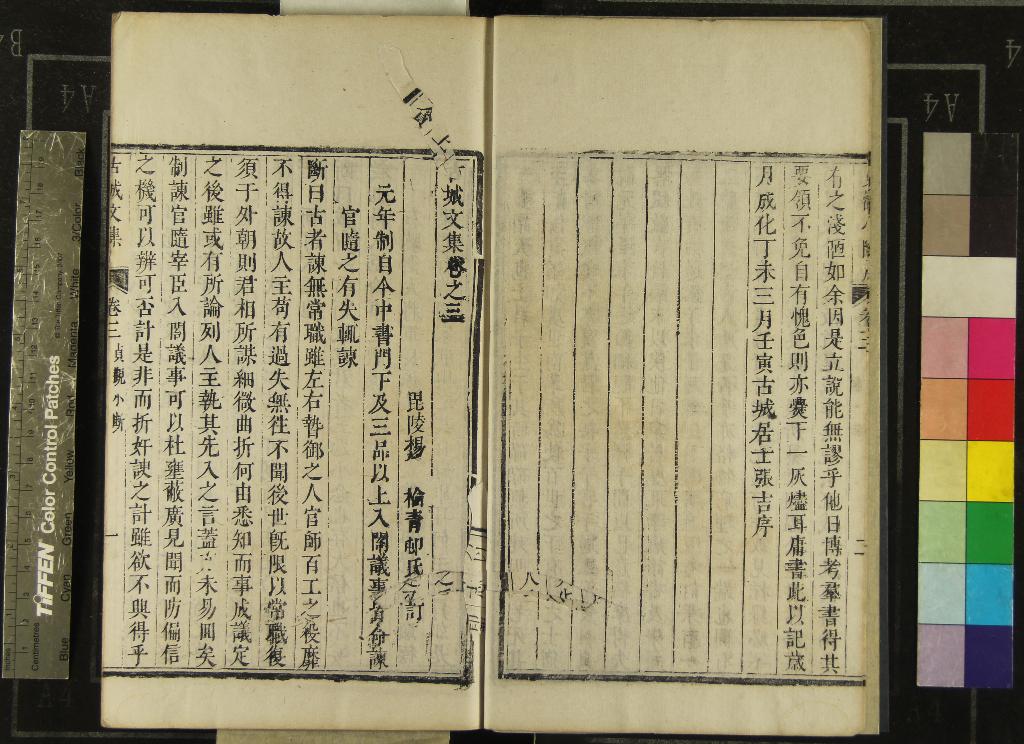 有之淺陋如余因是立說能無謬乎他日博考羣書得其
要領不免自有愧色則亦爨下一灰燼耳庸書此以記歲
月成化丁未三月壬寅古城居士張吉序
城文集卷之三
毘陵楊 檢青卹氏 訂
元年制自今中書門下及三品以上入閣議事皆命諫
官隨之有失輒諫
斷曰古者諫無常職雖左右暬御之人官師百工之役靡
不得諫故人主苟有過失無徃不聞後世旣限以常職復
須于外朝則君相所謀細微曲折何由悉知而事成議定
之後雖或有所論列人主執其先入之言蓋亦未易囬矣
制諫官隨宰臣入閣議事可以杜壅蔽廣見聞而防偏信
之機可以辨可否計是非而折奸諛之計雖欲不興得乎
古城文集 卷三 貞觀小斷 一
TIFFEN Color Control Patches
Blue Cyan Green Yellow Red Magenta White 3/Color Black
Centimetres
Inches
A4
A4
B4